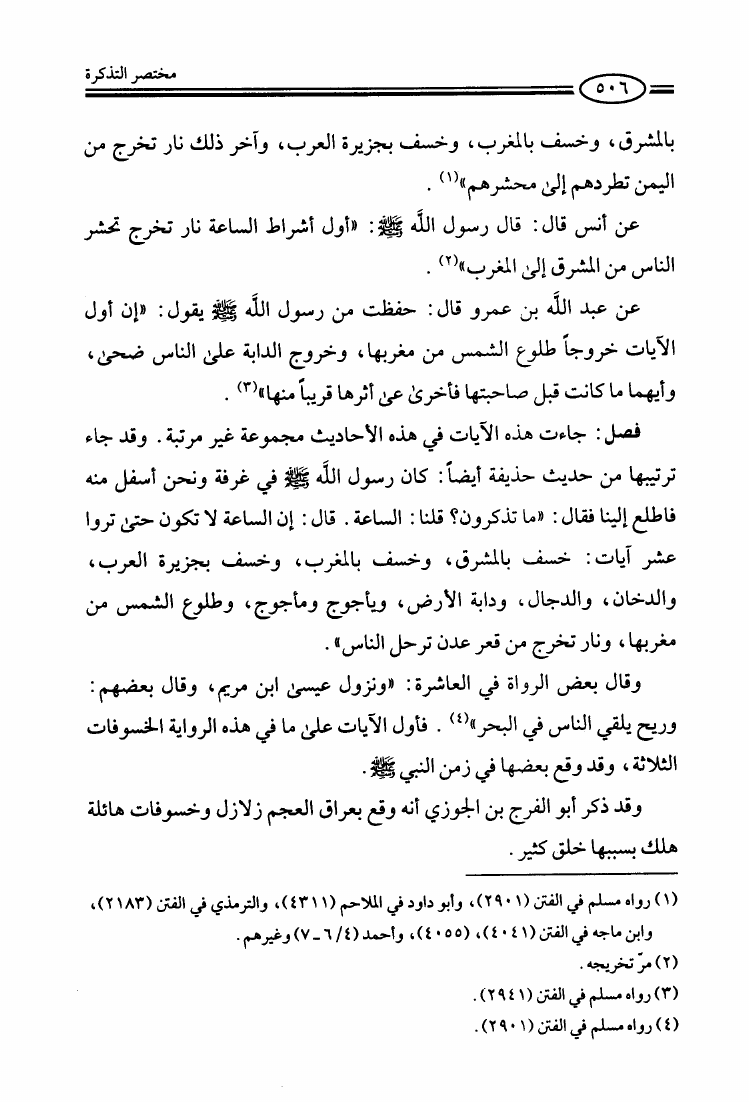 مختصر التذكرة
٥٠٦
بالمشرق، وخسف بالمغرب، وخسف بجزيرة العرب، وآخر ذلك نار تخرج من
اليمن تطردهم إلىٰ محشرهم»(١) .
عن أنس قال: قال رسول اللَّه ﷺ: «أول أشراط الساعة نار تخرج تحشر
الناس من المشرق إلىٰ المغرب»(٢) .
عن عبد اللَّه بن عمرو قال: حفظت من رسول اللَّه ﷺ يقول: «إن أول
الآيات خروجاً طلوع الشمس من مغربها، وخروج الدابة علىٰ الناس ضحىٰ،
وأيهما ما كانت قبل صاحبتها فأخرىٰ عىٰ أثرها قريباً منها»(٣) .
فصل: جاءت هذه الآيات في هذه الأحاديث مجموعة غير مرتبة. وقد جاء
ترتيبها من حديث حذيفة أيضاً: كان رسول اللَّه ﷺ في غرفة ونحن أسفل منه
فاطلع إلينا فقال: «ما تذكرون؟ قلنا: الساعة. قال: إن الساعة لا تكون حتىٰ تروا
عشر آيات: خسف بالمشرق، وخسف بالمغرب، وخسف بجزيرة العرب،
والدخان، والدجال، ودابة الأرض، ويأجوج ومأجوج، وطلوع الشمس من
مغربها، ونار تخرج من قعر عدن ترحل الناس».
وقال بعض الرواة في العاشرة: «ونزول عيسىٰ ابن مريم، وقال بعضهم:
وريح يلقي الناس في البحر»(٤) . فأول الآيات علىٰ ما في هذه الرواية الخسوفات
الثلاثة، وقد وقع بعضها في زمن النبي ﷺ.
وقد ذكر أبو الفرج بن الجوزي أنه وقع بعراق العجم زلازل وخسوفات هائلة
هلك بسببها خلق كثير.
(١) رواه مسلم في الفتن (٢٩٠١)، وأبو داود في الملاحم (٤٣١١)، والترمذي في الفتن (٢١٨٣)،
وابن ماجه في الفتن (٤٠٤١)، (٤٠٥٥)، وأحمد (٤/ ٦ـ٧) وغيرهم.
(٢) مرّ تخريجه.
(٣) رواه مسلم في الفتن (٢٩٤١).
(٤) رواه مسلم في الفتن (٢٩٠١).